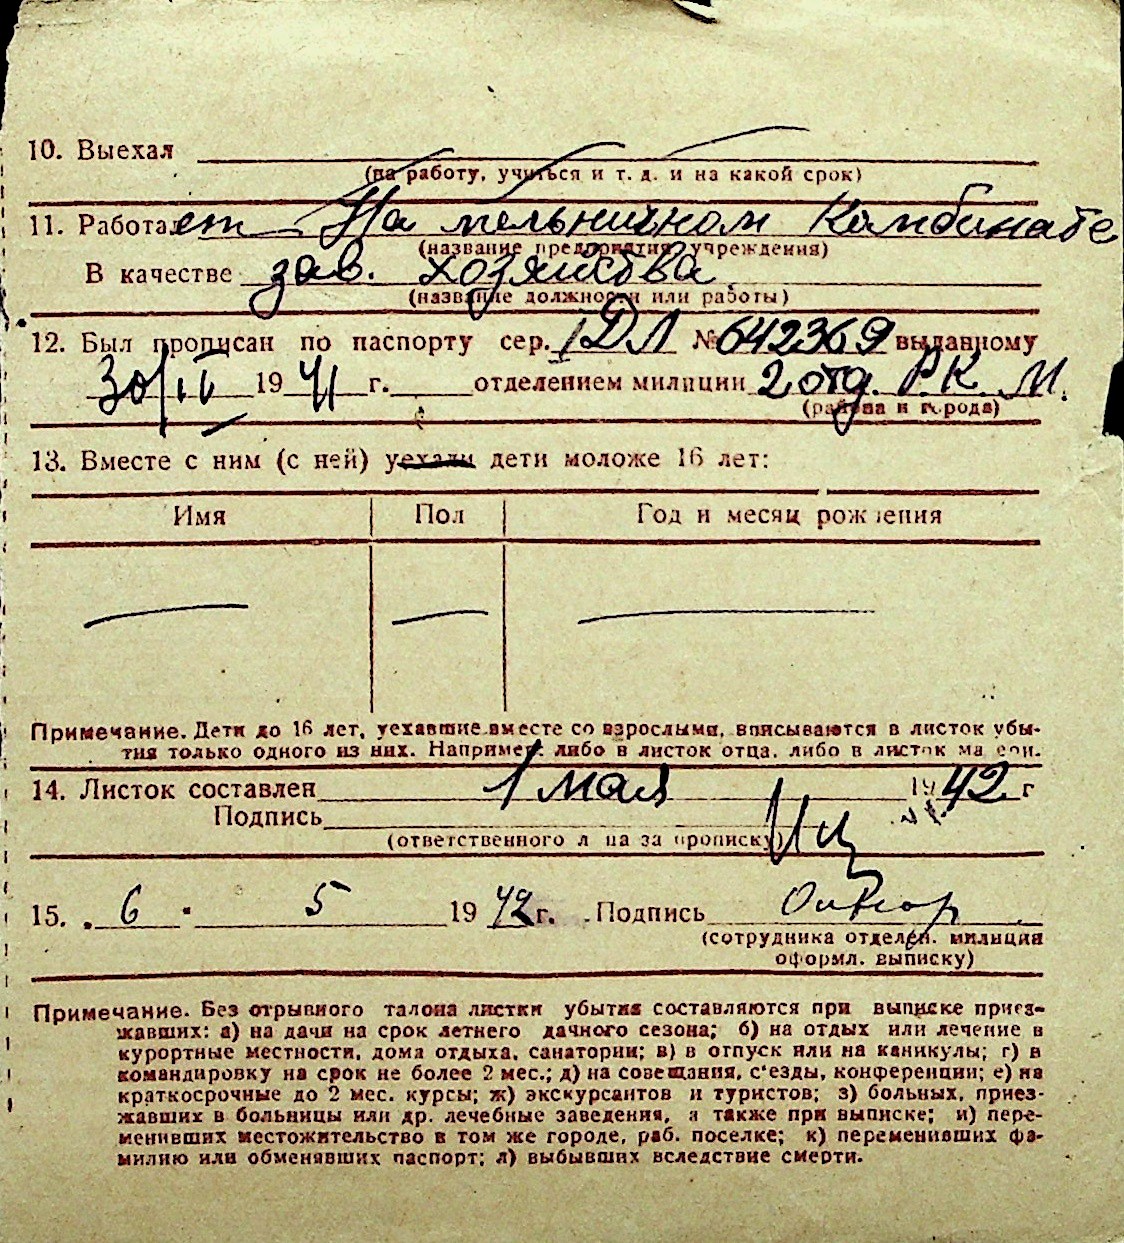 10. Выехал
(на работу, учиться и т. д. и на какой срок)
11. Работает На мельничном Комбинате
(название предприятия, учреждения)
В качестве зав. хозяйства
(название должности или работы)
12. Был прописан по паспорту сер. 1ДЛ № 642369 выданному
30/IV 1941 г. отделением милиции 2 отд. Р.К.М.
(района и города)
13. Вместе с ним (с ней) уехали дети моложе 16 лет:
Имя Пол Год и месяц рождения
Примечание. Дети до 16 лет, уехавшие вместе со взрослыми, вписываются в листок убы-
тия только одного из них. Например: либо в листок отца, либо в листок матери.
14. Листок составлен 1 мая 1942 г
Подпись
(ответственного лица за прописку)
15. „6" 5 1942 г. Подпись
(сотрудника отделен. милиции
оформл. выписку)
Примечание. Без отрывного талона листки убытия составляются при выписке приез-
жавших: а) на дачи на срок летнего дачного сезона; б) на отдых или лечение в
курортные местности, дома отдыха, санатории; в) в отпуск или на каникулы; г) в
командировку на срок не более 2 мес.; д) на совещания, с'езды, конференции; е) на
краткосрочные до 2 мес. курсы; ж) экскурсантов и туристов; з) больных, приез-
жавших в больницы или др. лечебные заведения, а также при выписке; и) пере-
менивших местожительство в том же городе, раб. поселке; к) переменивших фа-
милию или обменявших паспорт; л) выбывших вследствие смерти.